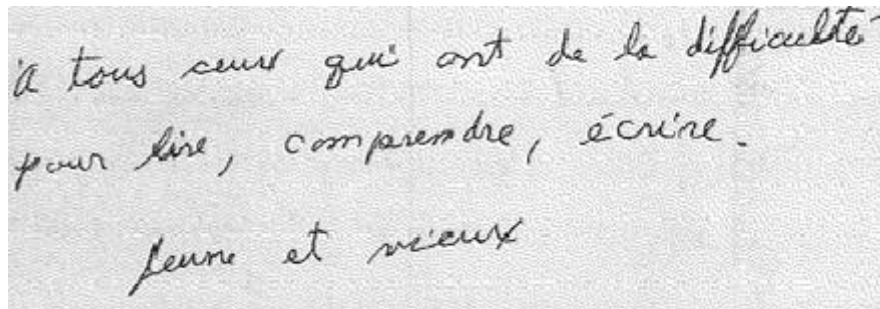 à tous ceux qui ont de la difficulté
pour lire, comprendre, écrire.
Jeune et vieux